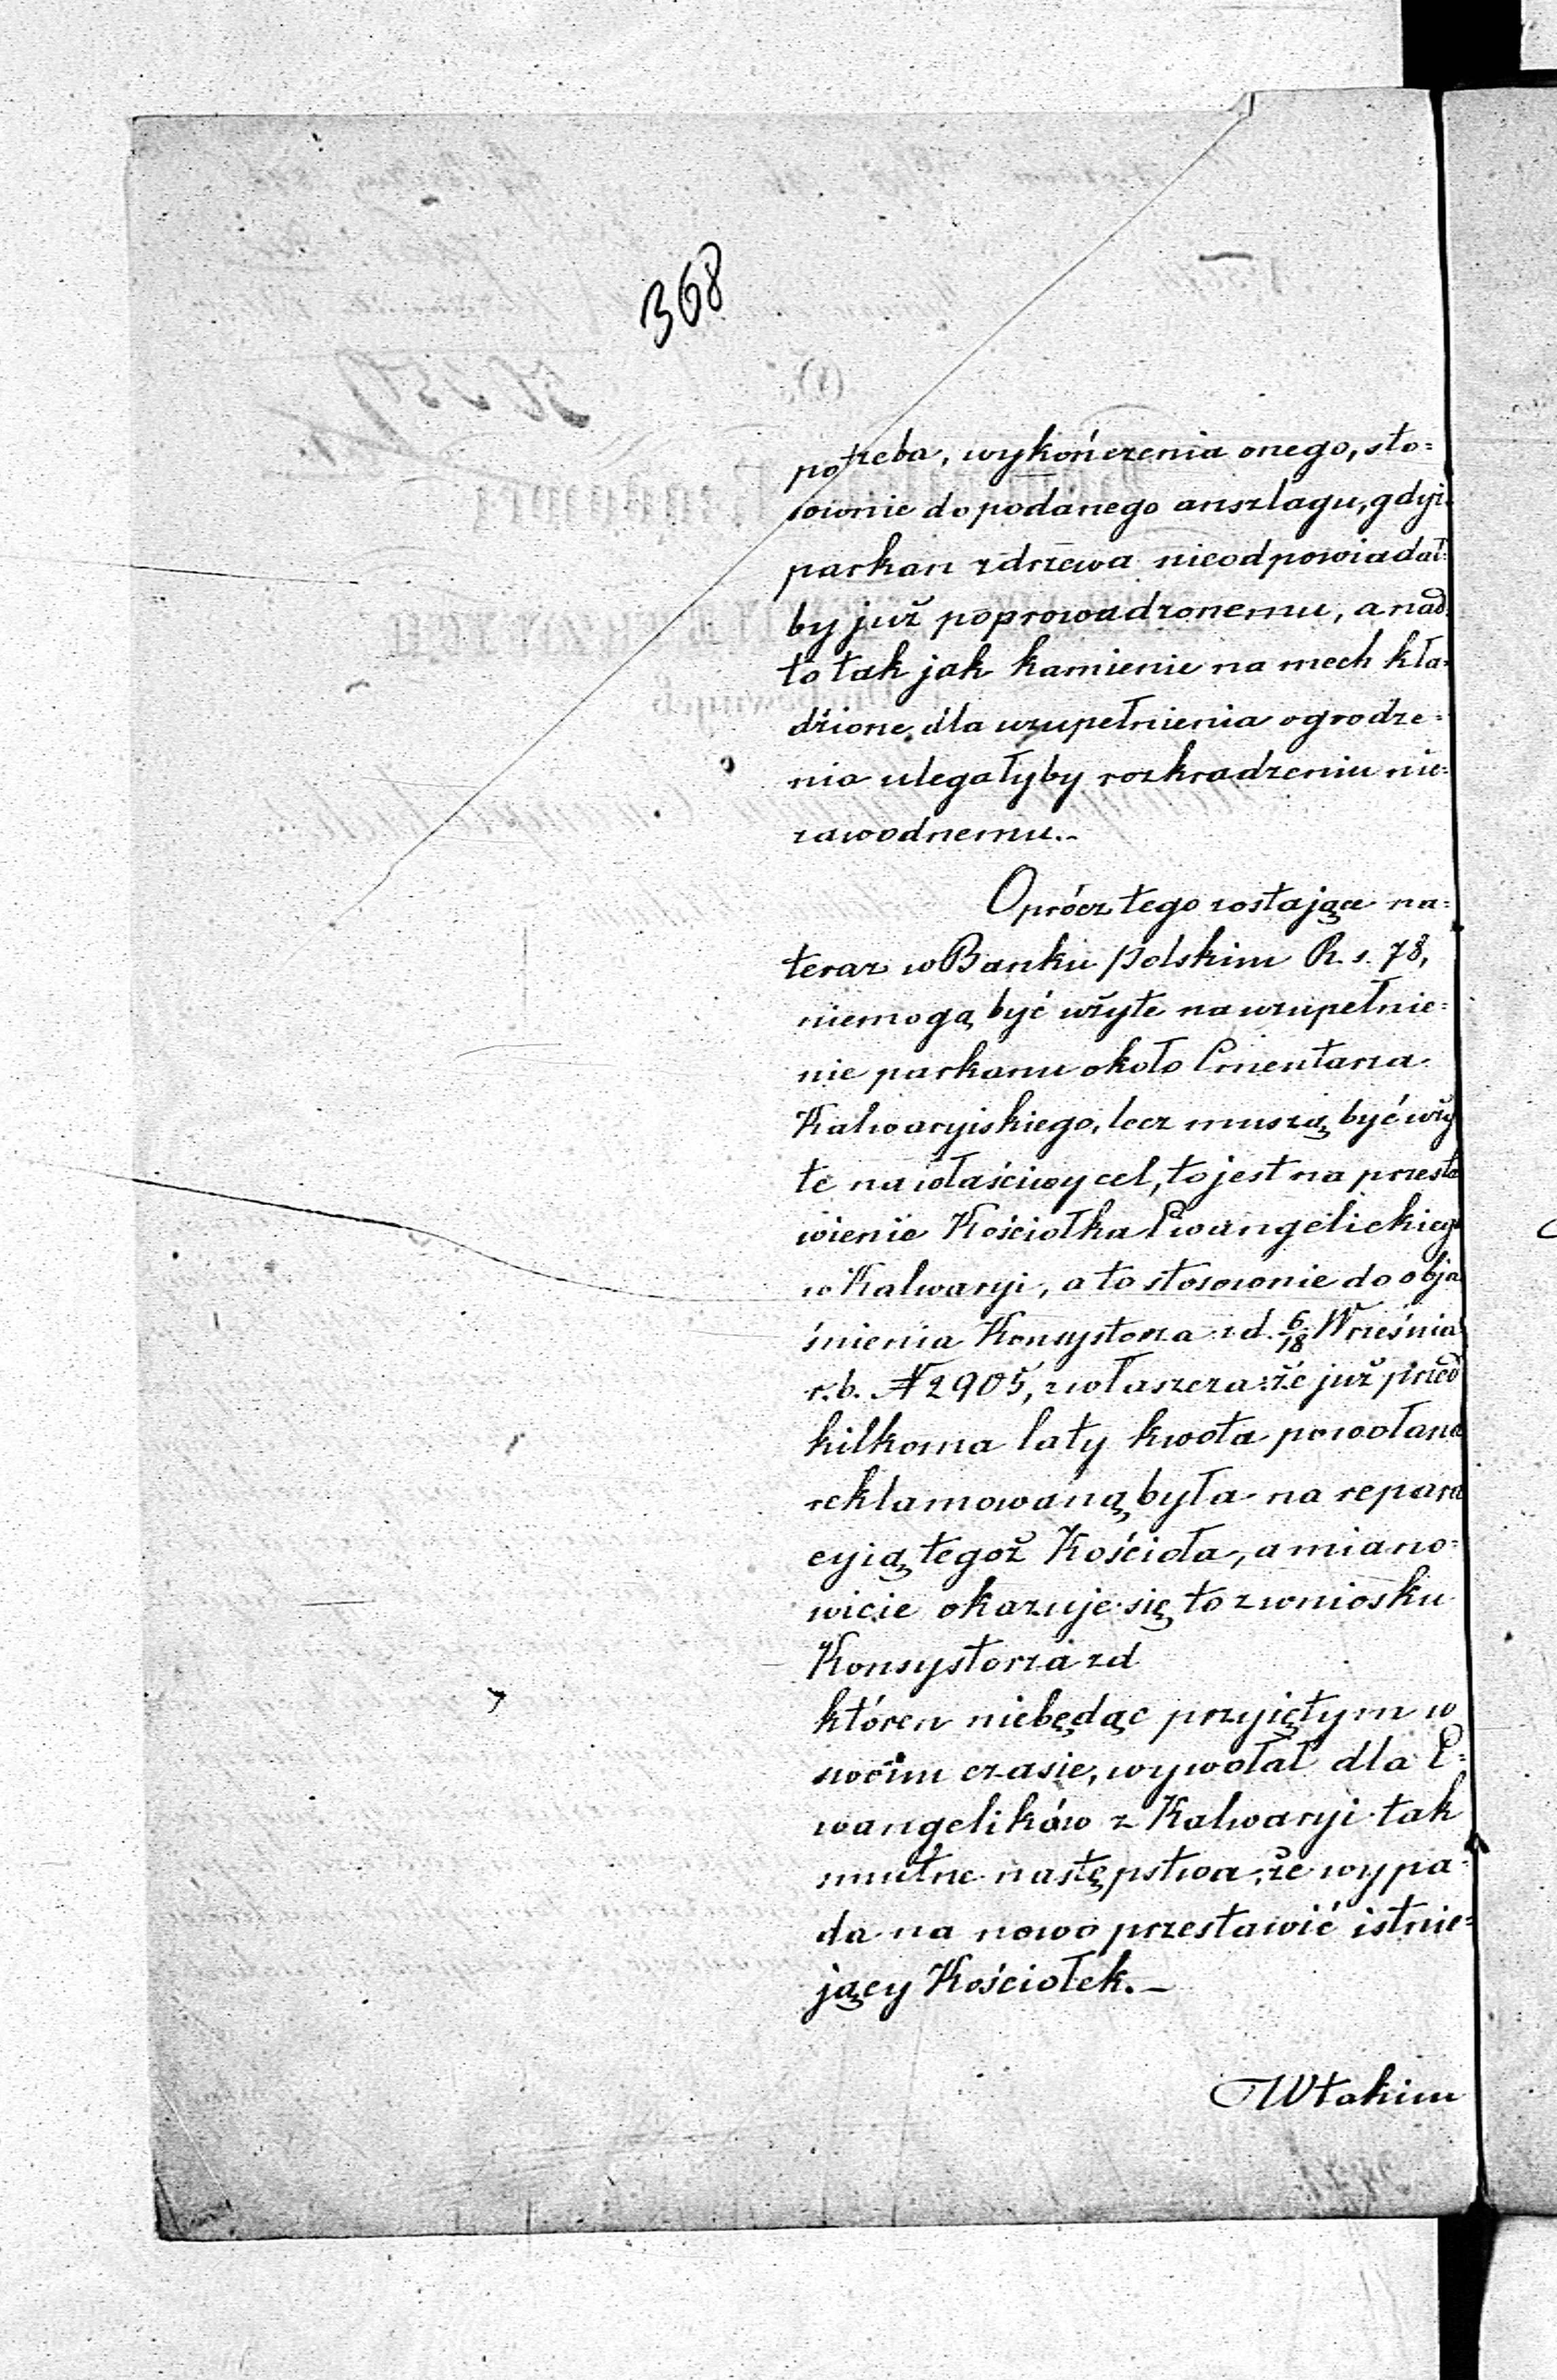 368
potrzeba, wykończenia onego, sto=
sownie do podanego anszlagu, gdyż
parkan z drzewa nieodpowiadał=
by już poprowadzonemu, a nad
to tak jak kamienie na mech kła=
dzione dla uzupełnienia ogrodze=
nia ulegałyby rozkradzeniu nie=
zawodnemu.-
Oprócz tego zostające na=
teraz w Banku Polskim R. s. 78,
niemogą być użyte na uzupełnie=
nie parkanu około Cmentarza
Kalwaryjskiego, lecz muszą być uży
te na właściwy cel, to jest na przesta
wienie Kościołka Ewangelickiego
w Kalwaryi, a to stosownie do obja
śnienia Konsystorza z d. 6/18 Września
r. b. N 2905, zwłaszcza: że już przed
kilkoma laty kwota powołana
reklamowaną była na repara
cyią tegoż Kościoła, a miano=
wicie okazuje się to z wniosku
Konsystorza z d
któren niebędąc przyiętym w
swoim czasie, wywołał dla E=
wangelików z Kalwaryi tak
smutne następstwa, że wypa=
da na nowo przestawić istnie=
jący Kościołek.-
W takim